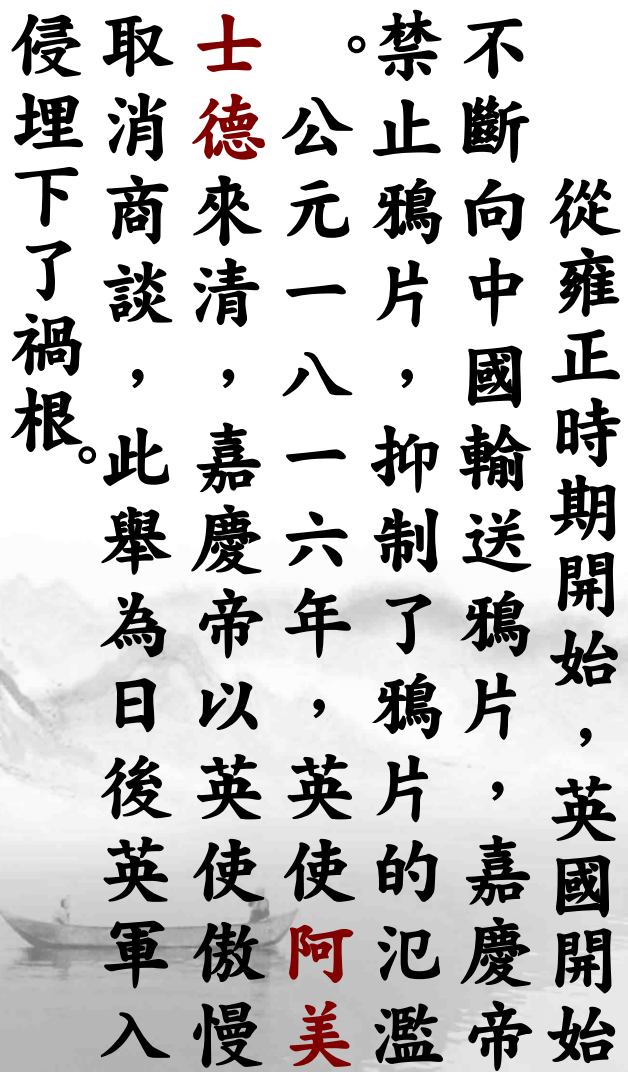 從雍正時期開始，英國開始
不斷向中國輸送鴉片，嘉慶帝
禁止鴉片，抑制了鴉片的氾濫
。
公元一八一六年，英使阿美
士德來清，嘉慶帝以英使傲慢
取消商談，此舉為日後英軍入
侵埋下了禍根。